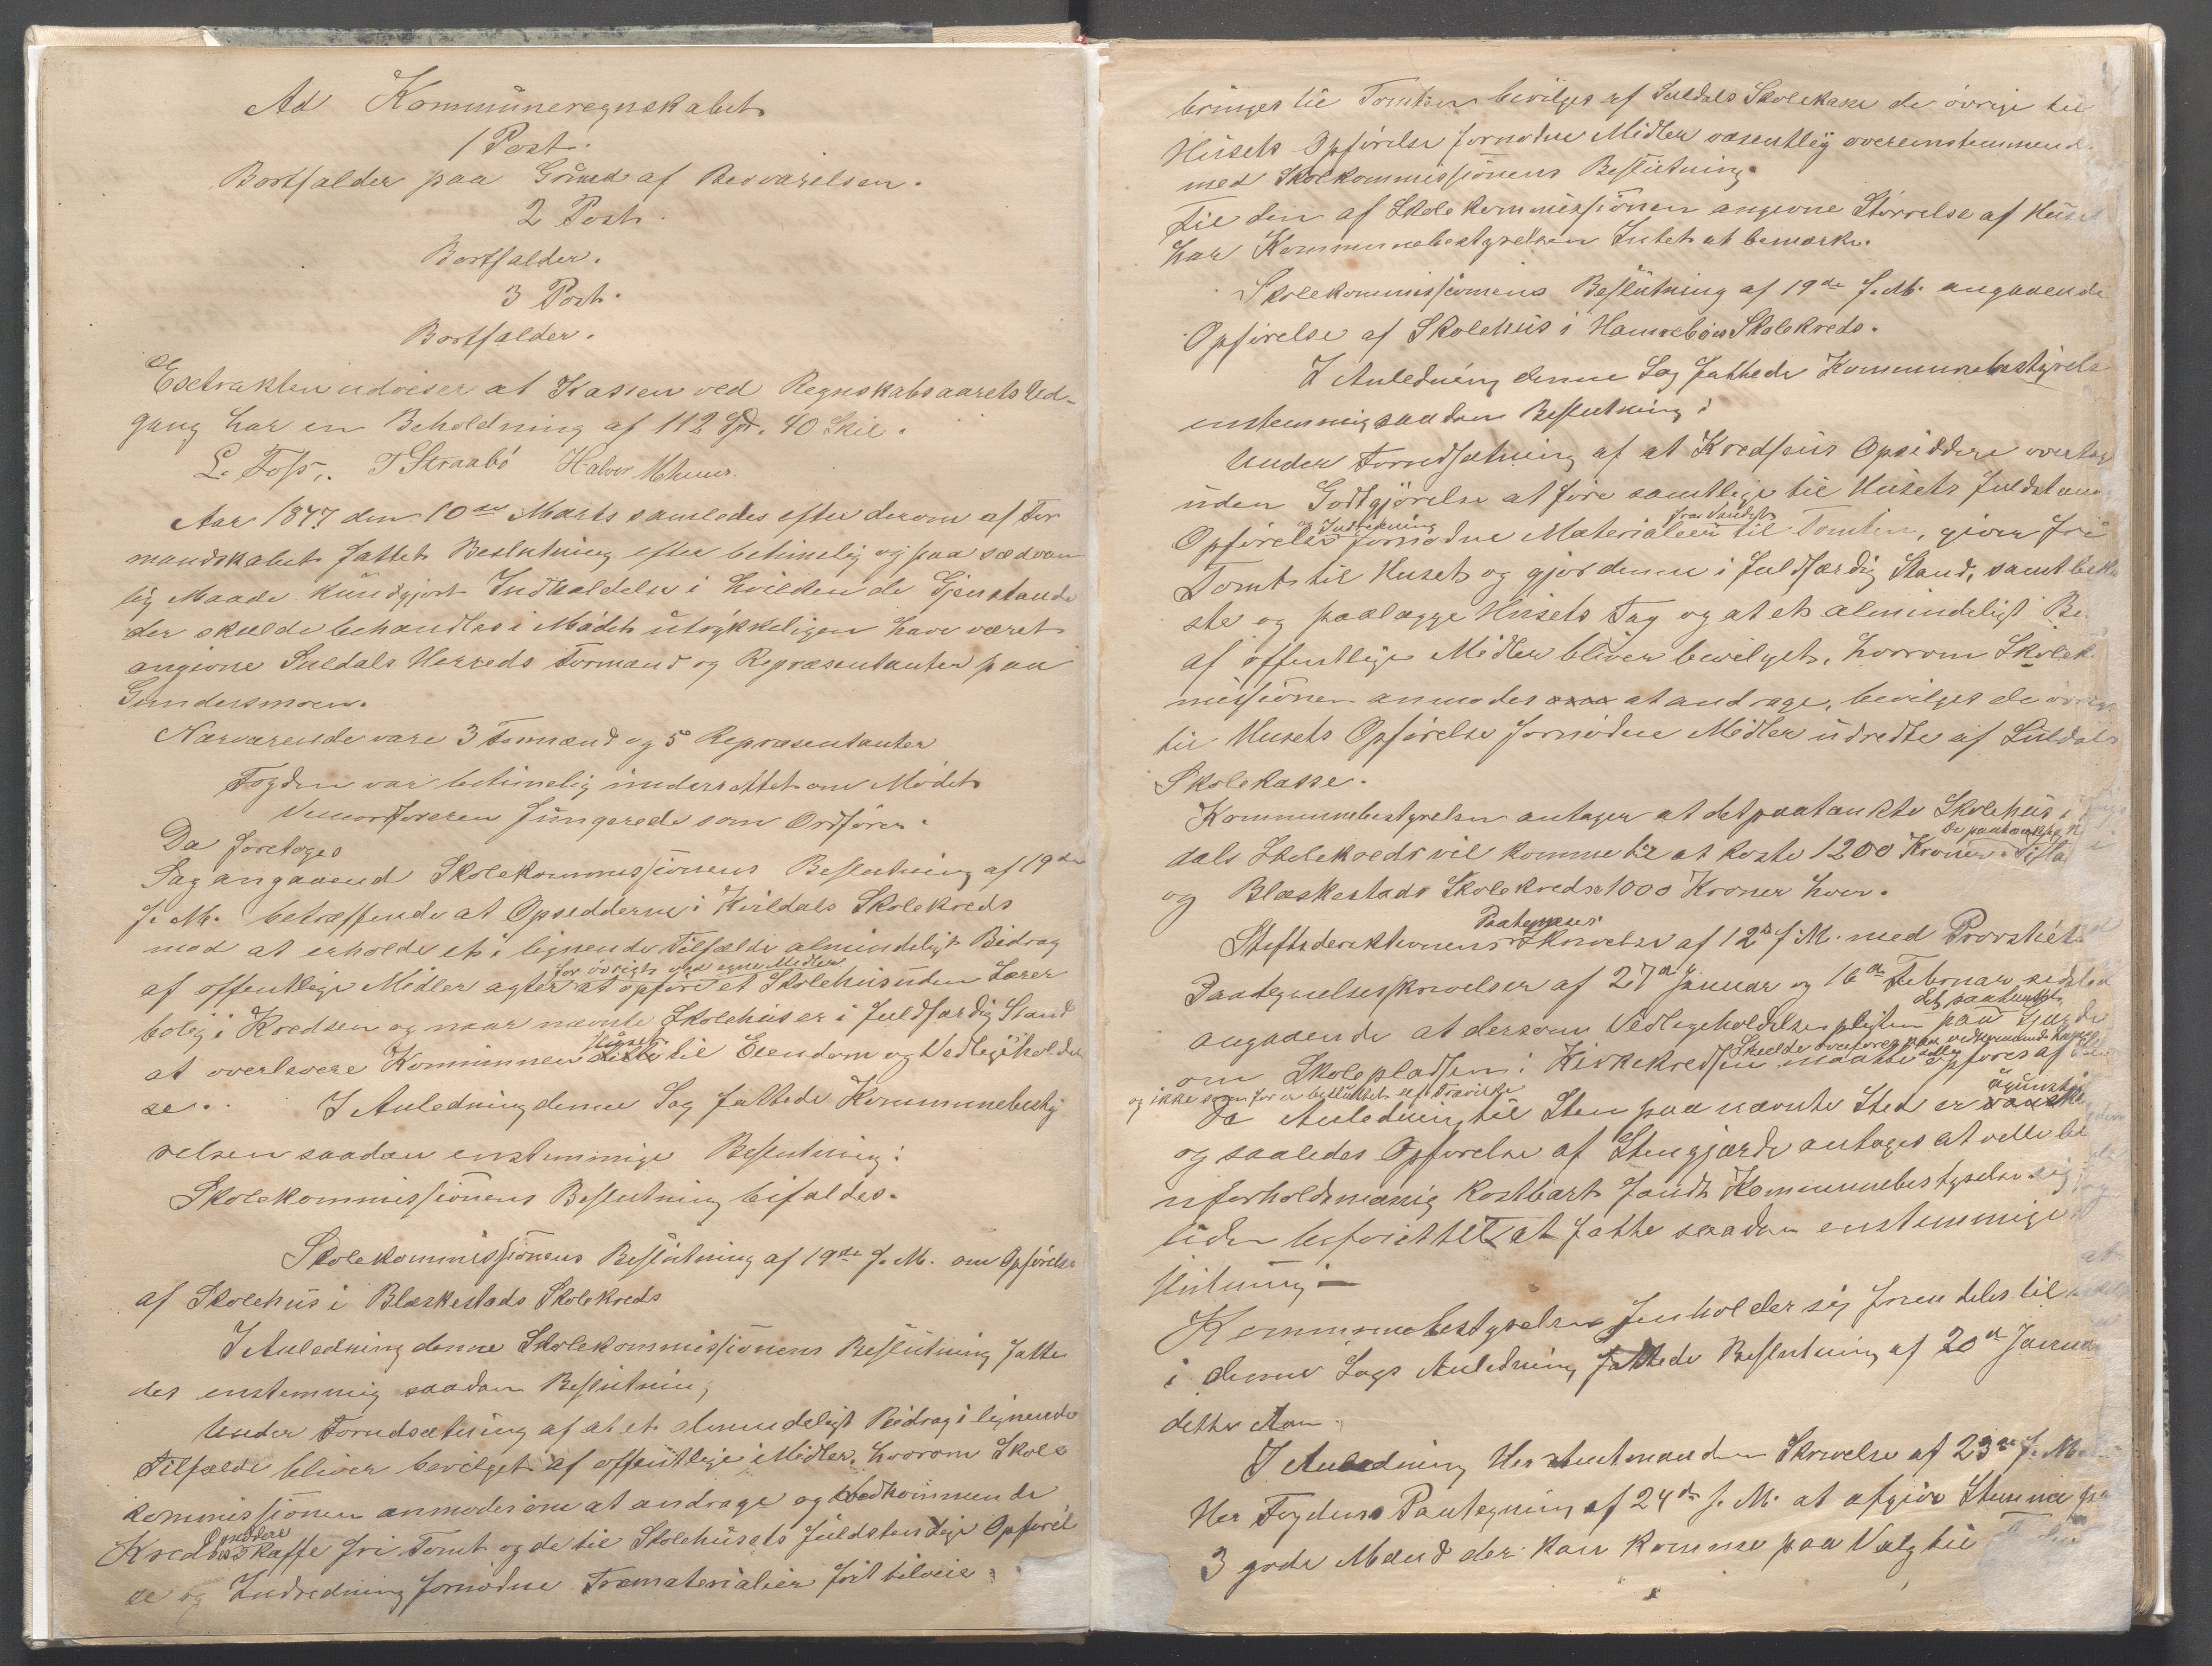 Ad Kommuneregnskabet
1 Post.
Bortfalder paa Grund af Besvarelsen.
2 Post.
Bortfalder.
3 Post.
Bortfalder.
Exstrakten udviser at Kassen ved Regnskabsaarets Ud-
gang har en Beholdning af 112 Spd. 40 Skil.
L. Foss. T Straabö Halvor Mehuus.
Aar 1877 den 10de Marts samledes efter derom af For
mandskabet fattet Beslutning efter betimelig og paa sædvan
lig Maade kundgjort Indkaldelse i hvilken de Gjenstande
der skulde behandles i Mödet utrykkeligen have været
angivne Suldals Herreds Formænd og Repræsentanter paa
Gundersmoen.
Nærværende vare 3 Formænd og 5 Repræsentanter
Fogden var betimelig underrettet om Mödet
Viceordföreren fungerede som Ordförer.
Da foretoges
Sag angaaend Skolekommissionens Beslutning af 19de
f. M. betræffende at Opsidderne i Kvildals Skolekreds
mod at erholde et i lignende Tilfælde almindeligt Bidrag
for övrigt ved egne Midler
af offentlige Midler agter at opföre et Skolehus uden Lærer
bolig i Kredsen og naar nævnte Skolehus er i fuldfærdig Stand
Huset
at overlevere Kommunen dette til Eiendom og Vedligeholdel
se. I Anledning denne Sag fattede Kommunebesty
relsen saadan enstemmige Beslutning:
Skolekommissionens Beslutning bifaldes.
Skolekommissionens Beslutning af 19de f. M. om Opförelse
af Skolehus i Blæskestads Skolekreds
I Anledning denne Skolekommissionens Beslutning fatte
des enstemmig saadan Beslutning;
Under Forudsætning af at et almindeligt Bidrag i lignende
Tilfælde bliver bevilget af offentlige Midler, hvorom Skole
kommissionen anmodes om at andrage og vedkommende
Opsiddere
Kreds skaffe fri Tomt og de til Skolehusets fuldstendige Opförel
se og Indredning fornödne Træmaterialier frit tilveie
bringes til Tomten bevilges af Suldals Skolekasse de övrige til
Husets Opförelse fornødne Midler væsentlig overenstemmend
med Skolkommissionens Beslutning.
Til den af Skolekommissionen angivne Störrelse af Huset
har Kommunebestyrelsen Intet at bemærke.
Skolekommissionens Beslutning af 19de f. M. angaaende
Opförelse af Skolehus i Hamreböes Skolekreds.
I Anledning denne Sag fattede Kommunebestyrels
enstemmig saadan Beslutning:
Under Forudsætning af at Kredsens Opsiddere overtag
uden Godtgjörelse at före samtlige til Husets fuldstæn
og Indredning fra Vandet
Opförelse fornødne Materialier til Tomten, giver fri
Tomt til Huset og gjör denne i fuldfærdig Stand, samt bek
ste og paalægge Husets Tag og at et almindeligt Be
af offentlige Midler bliver bevilget, hvorom Skolek
missionen anmodes at andrage, bevilges de övrige
til Husets Opförelse fornödne Midler udredte af Suldals
Skolekasse.
Kommunebestyrelsen antager at det paatænkte Skolehus i
dals Skolekreds vil komme til at koste 1200 Kroner.
og Blæskestads Skolekredse 1000 Kroner hver.
Paategnings
Stiftsdirektionens Skrivelse af 12te f. M. med Provstiets
Paategnelsesskrivelser af 27de Januar og 16de Februar sidstl
det paatænkte
angaaende at dersom Vedligeholdelsespligten paa Gjerde
Skulde overføres paa vedkommende
om Skolepladsen i Kirkekredsen maatte opföres af Sten
og ikke som för er besluttet af Trævirke
Da Anledning til Sten paa nævnte Sted er ugunstig
og saaledes Opförelse af Stengjærde antages at ville bl
uforholdsmæssig kostbart fandt Kommunebestyrelsen sig
uden beföiet til at fatte saadan enstemmige
slutning:
Kommunebestyrelsen henholder sig fremdeles til
i denne Sags Anledning fattede Beslutning af 20de Janua
dette Aar.
I Anledning Her Amtmandens Skrivelse af 23de f. M.
Her Fogdens Paategning af 24de f. M. at afgive Stemme paa
3 gode Mænd der kan komme paa Valg til